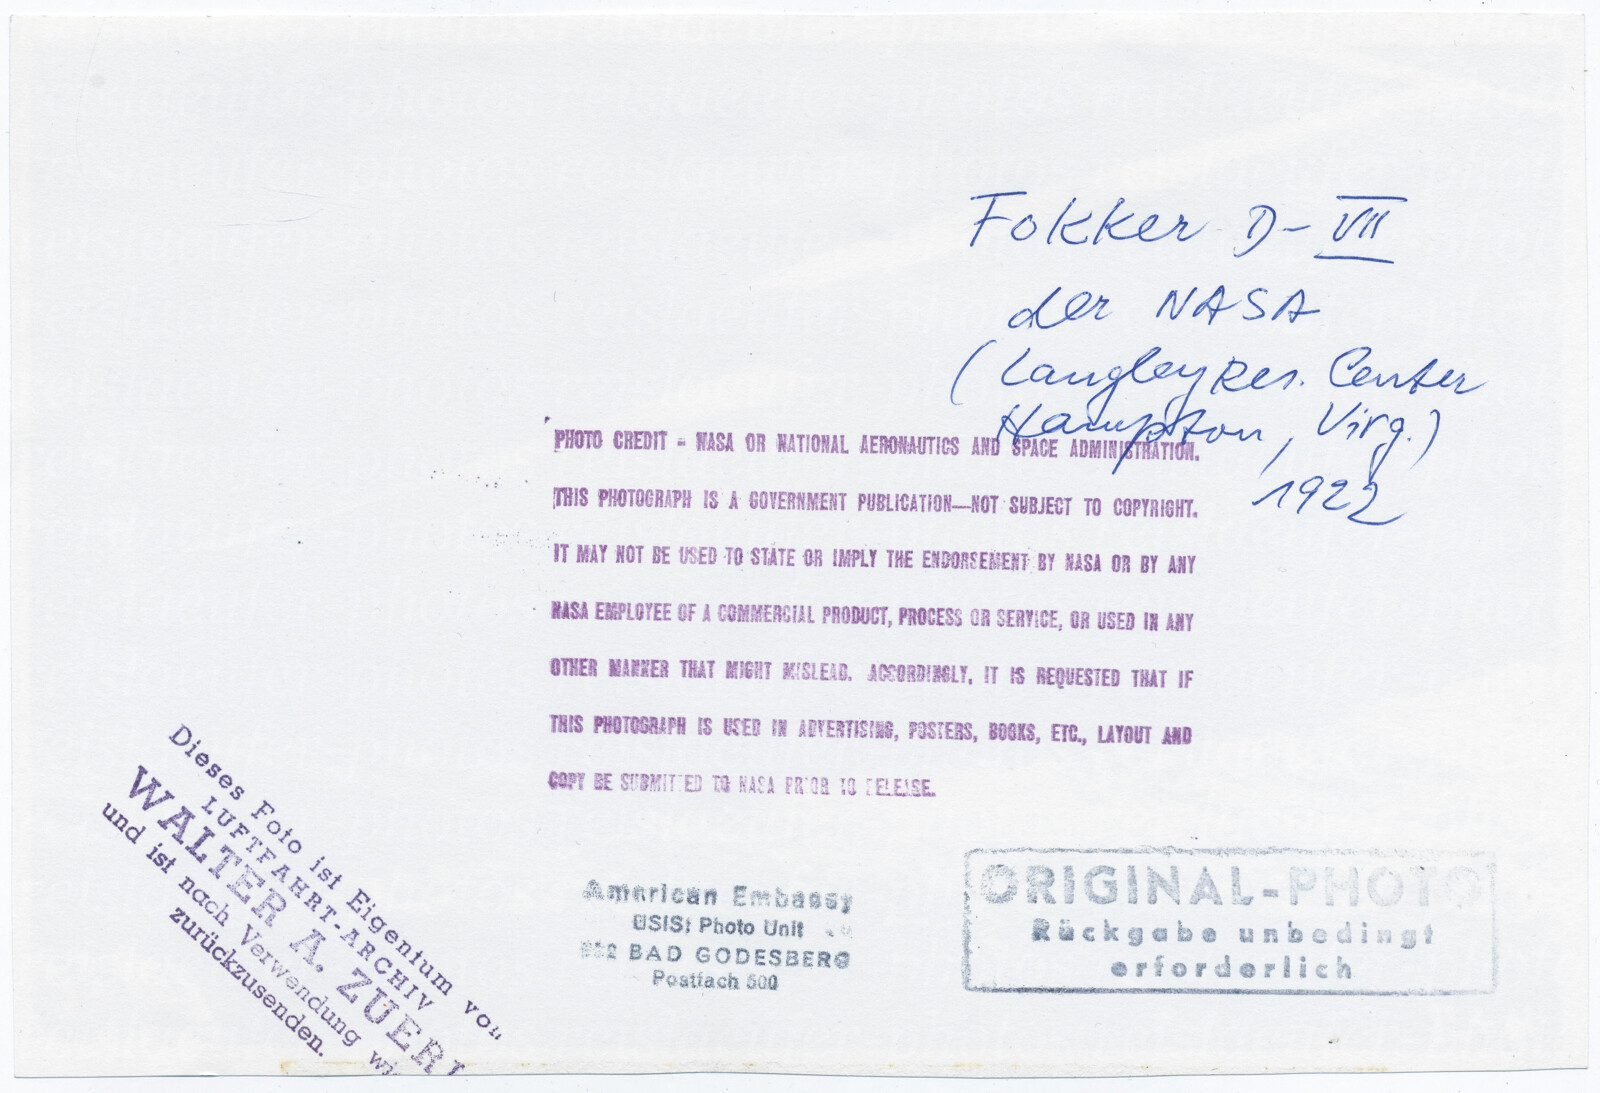 Fokker D-VII
der NASA
(Langley Res. Center
Hampton, Virg.)
1922
PHOTO CREDIT - NASA OR NATIONAL AERONAUTICS AND SPACE ADMINISTRATION.
THIS PHOTOGRAPH IS A GOVERNMENT PUBLICATION—NOT SUBJECT TO COPYRIGHT.
IT MAY NOT BE USED TO STATE OR IMPLY THE ENDORSEMENT BY NASA OR BY ANY
NASA EMPLOYEE OF A COMMERCIAL PRODUCT, PROCESS OR SERVICE, OR USED IN ANY
OTHER MANNER THAT MIGHT MISLEAD. ACCORDINGLY, IT IS REQUESTED THAT IF
THIS PHOTOGRAPH IS USED IN ADVERTISING, POSTERS, BOOKS, ETC., LAYOUT AND
COPY BE SUBMITTED TO NASA PRIOR TO RELEASE.
Dieses Foto ist Eigentum von
LUFTFAHRT-ARCHIV
WALTER A. ZUERL
und ist nach Verwendung
zurückzusenden.
American Embassy
USIS; Photo Unit
BAD GODESBERG
Postfach 500
ORIGINAL-PHOTO
Rückgabe unbedingt
erforderlich